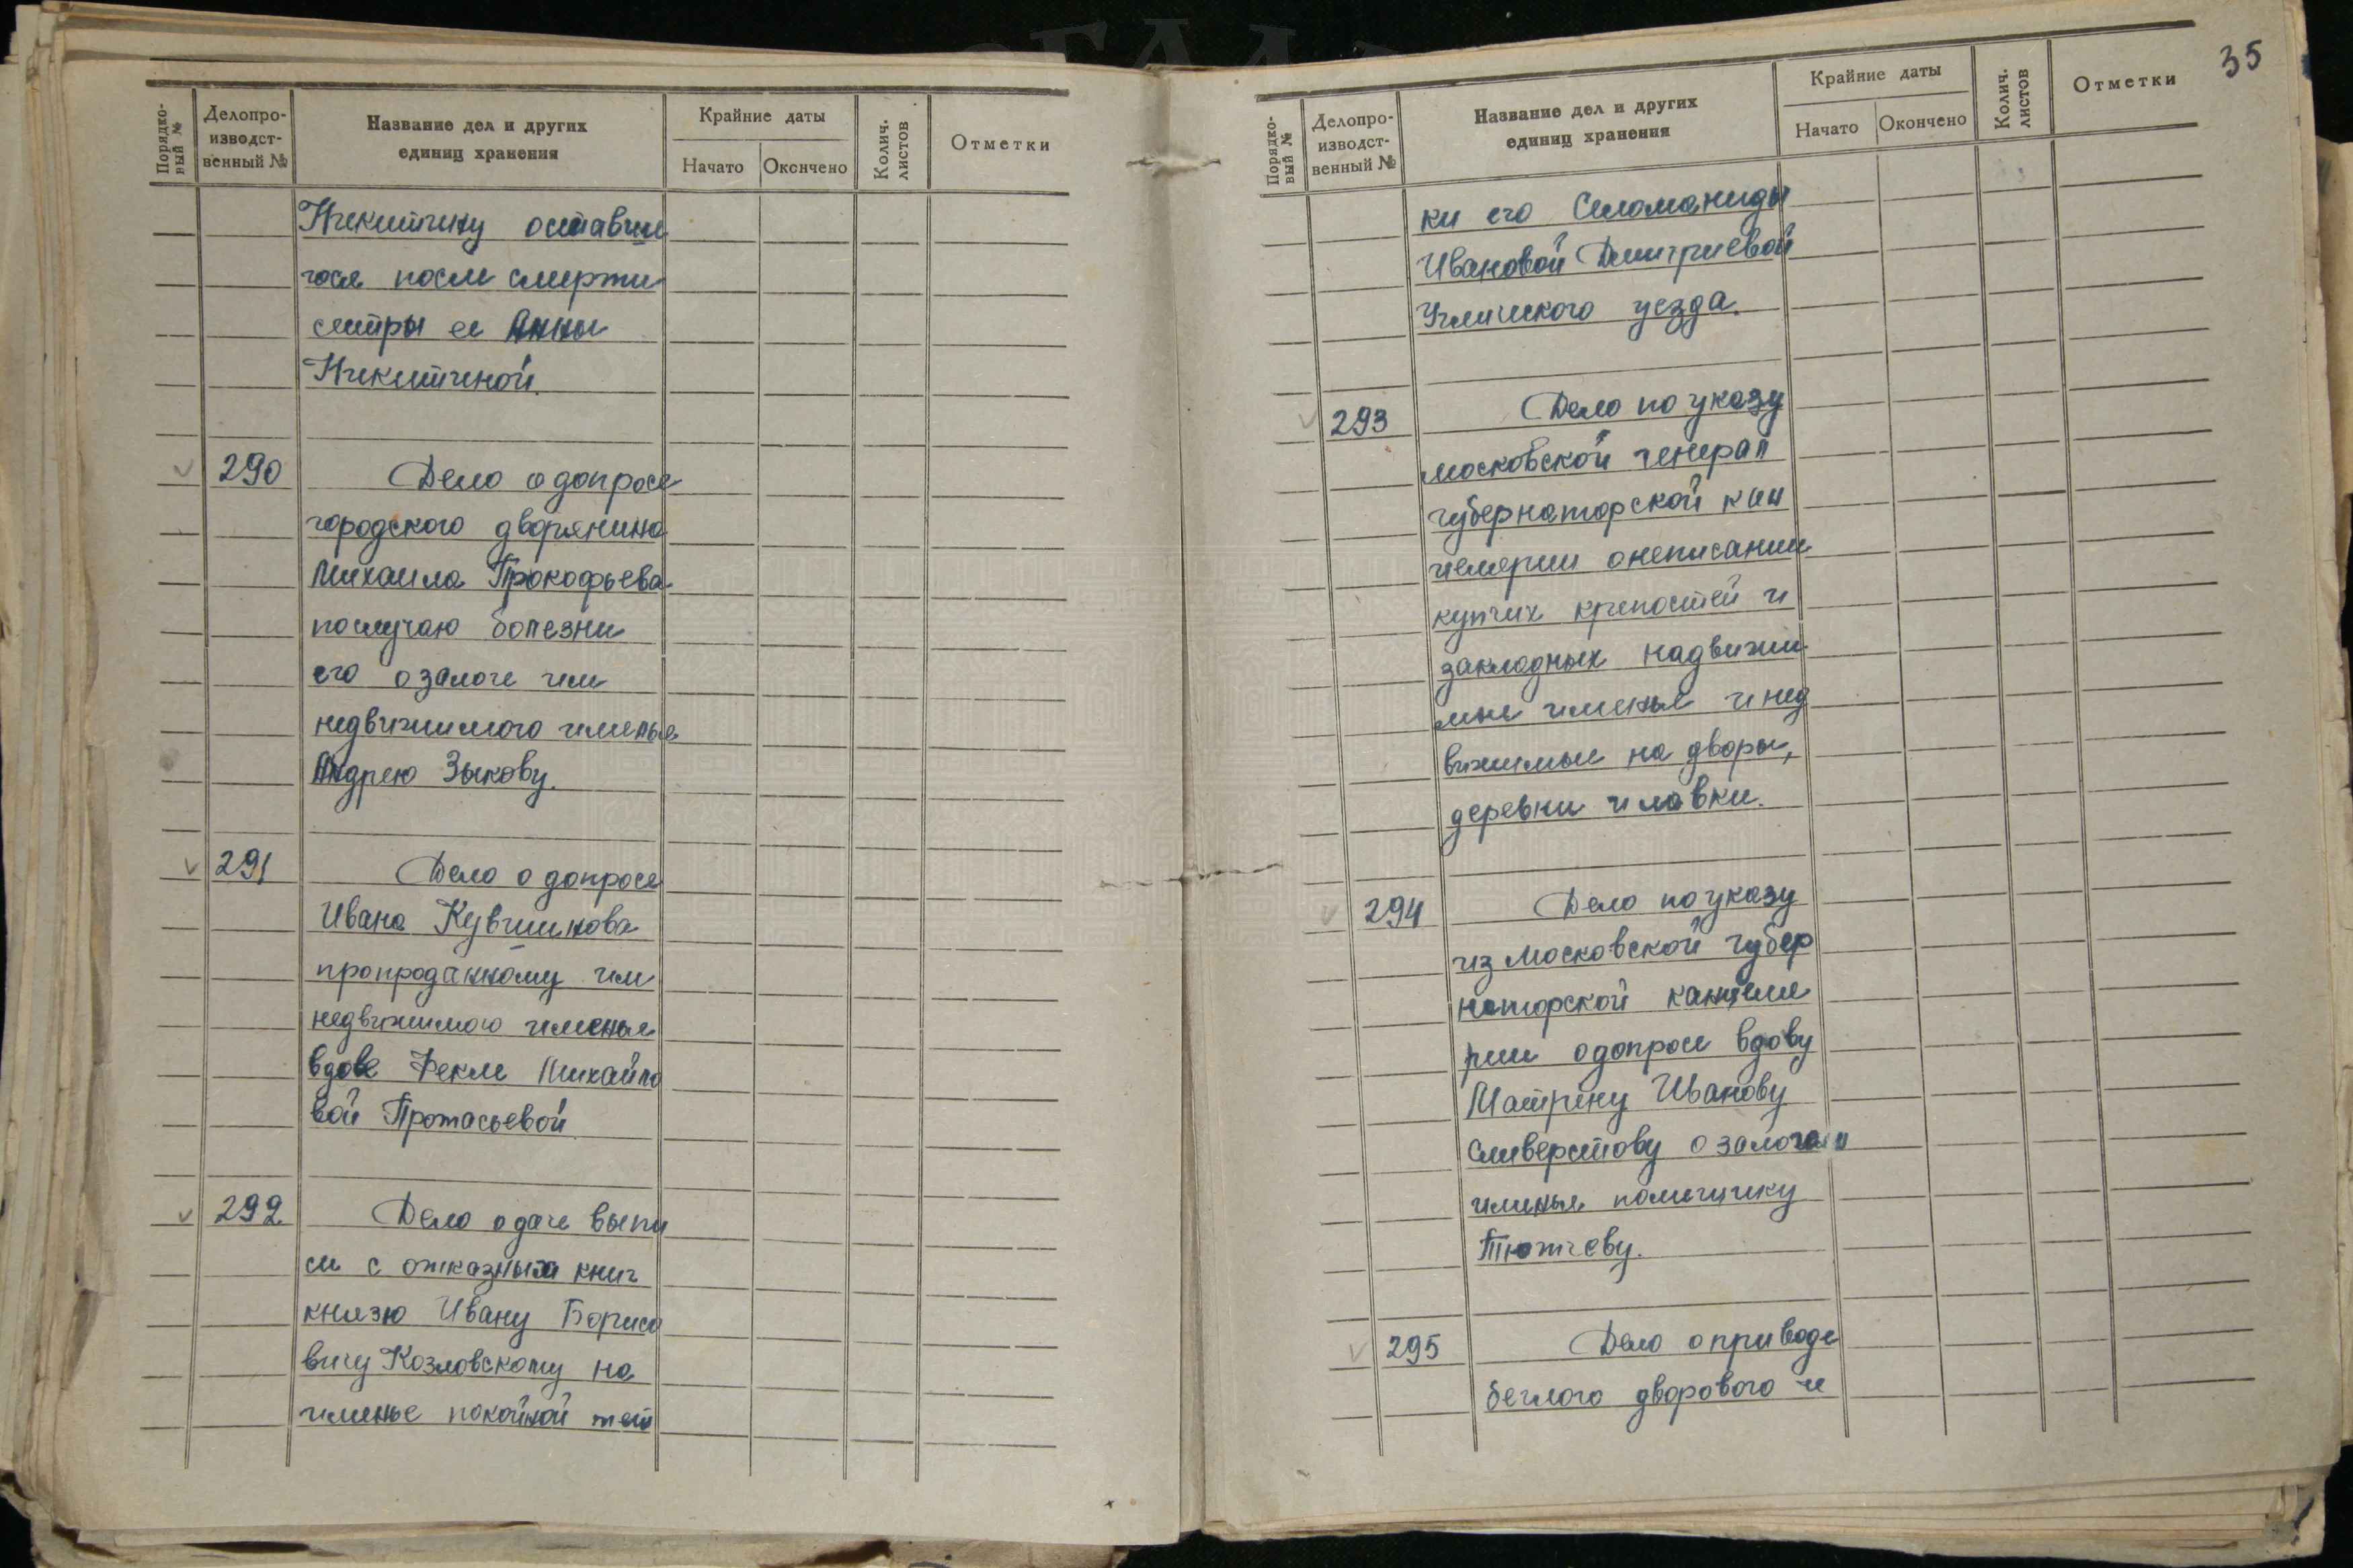 Порядко-
вый №
Делопро-
изводст-
венный №
Название дел и других
единиц хранения
Крайние даты
Начато
Окончено
Колич.
листов
Отметки
Никитину оставши
гося после смерти
сестры ее Анны
Никитиной.
290
Дело о допросе
городского дворянина
Михаила Прокофьева
послучаю болезни
его о залоге им
недвижимого именья
Андрею Зыкову.
291
Дело о допросе
Ивана Кувшинова
пропроданному им
недвижимого именья
вдове Фекле Михайло
вой Протасьевой
292
Дело о даче выпи
си с отказных книг
князю Ивану Борисо
вичу Козловскому на
именье покойной тет
35
Порядко-
вый №
Делопро-
изводст-
венный №
Название дел и других
единиц хранения
Крайние даты
Начато
Окончено
Колич.
листов
Отметки
ки его Соломаниды
Ивановой Дмитриевой
Угличского уезда.
293
Дело по указу
московской генерал
губернаторской кан
целерии онеписании
купчих крепостей и
закладных надвижи
мые именья и нед
вижимые на дворы,
деревни и лавки.
294
Дело по указу
из московской губер
наторской канцеле
рии о допросе вдову
Матрену Иванову
Сиверстову о залогам
именья помещику
Тютчеву.
295
Дело о приводе
беглого дворового че